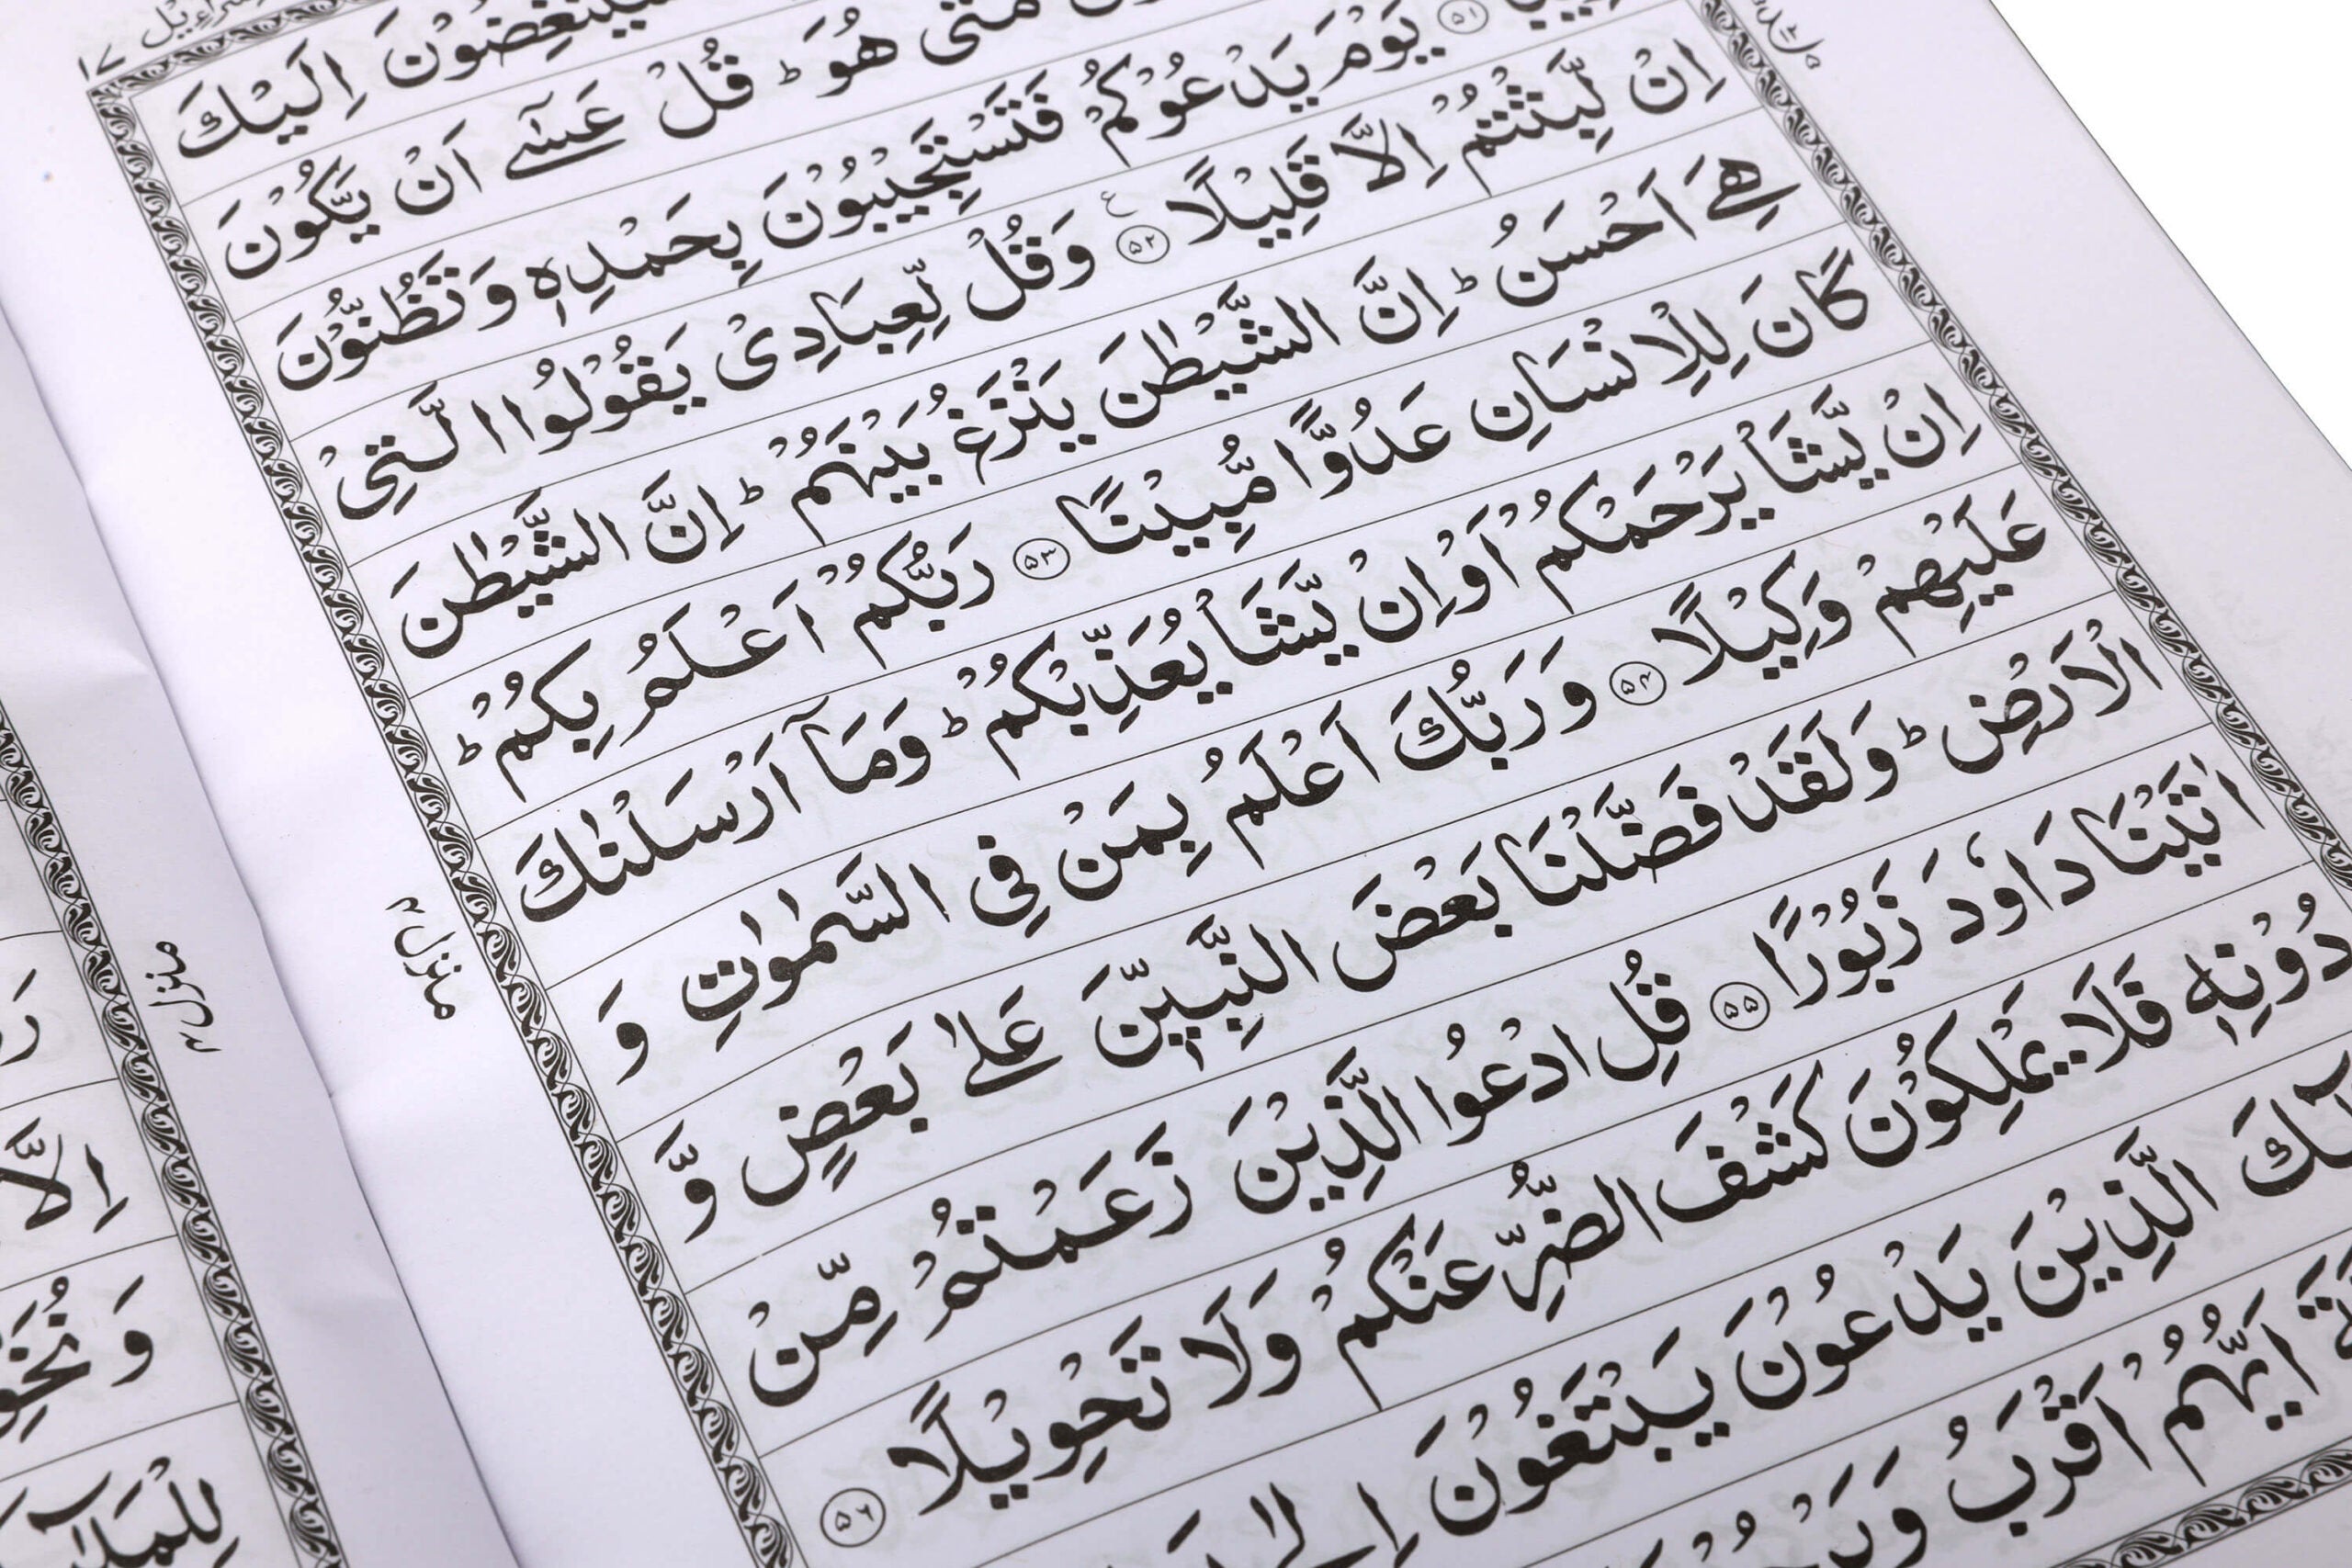 ١٧
اِلَيْكَ
مَتٰى هُوَ ؕ قُلْ عَسٰٓى اَنْ يَّكُوْنَ
۵۱ يَوْمَ يَدْعُوْكُمْ فَتَسْتَجِيْبُوْنَ بِحَمْدِهٖ وَتَظُنُّوْنَ
اِنْ لَّبِثْتُمْ اِلَّا قَلِيْلًا ۵۲ ع وَقُلْ لِّعِبَادِىْ يَقُوْلُوا الَّتِىْ
هِىَ اَحْسَنُ ؕ اِنَّ الشَّيْطٰنَ يَنْزَغُ بَيْنَهُمْ ؕ اِنَّ الشَّيْطٰنَ
كَانَ لِلْاِنْسَانِ عَدُوًّا مُّبِيْنًا ۵۳ رَبُّكُمْ اَعْلَمُ بِكُمْ ؕ
اِنْ يَّشَاْ يَرْحَمْكُمْ اَوْ اِنْ يَّشَاْ يُعَذِّبْكُمْ ؕ وَمَاۤ اَرْسَلْنٰكَ
عَلَيْهِمْ وَكِيْلًا ۵۴ وَرَبُّكَ اَعْلَمُ بِمَنْ فِى السَّمٰوٰتِ وَ
الْاَرْضِ ؕ وَلَقَدْ فَضَّلْنَا بَعْضَ النَّبِيّٖنَ عَلٰى بَعْضٍ وَّ
اٰتَيْنَا دَاوٗدَ زَبُوْرًا ۵۵ قُلِ ادْعُوا الَّذِيْنَ زَعَمْتُمْ مِّنْ
دُوْنِهٖ فَلَا يَمْلِكُوْنَ كَشْفَ الضُّرِّ عَنْكُمْ وَلَا تَحْوِيْلًا ۵۶
الَّذِيْنَ يَدْعُوْنَ يَبْتَغُوْنَ اِلٰى
اَيُّهُمْ اَقْرَبُ
منزل ۴
منزل ۴
اِلَّا